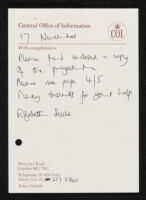 Central Office of Information
COI
17 November
With compliments
Please find enclosed a copy
of the programme
Please see page 4/5
Many thanks for your help
Elizabeth
Hercules Road
London SE1 7DU
Telephone 01 928 2345
Direct line 01- 217
Telex 915444